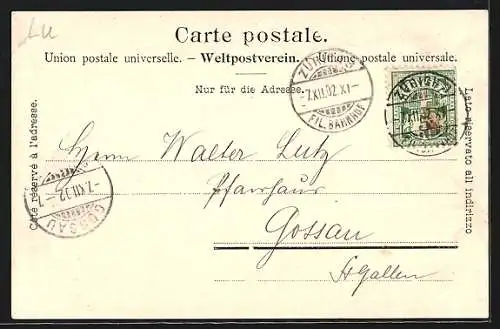 Carte postale.
Union postale universelle. – Weltpostverein. – Unione postale universale.
Nur für die Adresse.
Côté réservé à l'adresse.
Lato riservato all' indirizzo
ZÜRICH
–7.XII.02.XI–
FIL. BAHNHOF
ZÜRICH
Herrn Walter Lutz
Pfarrhaus
Gossau
St. Gallen
–7.XII.02.–7
GOSSAU